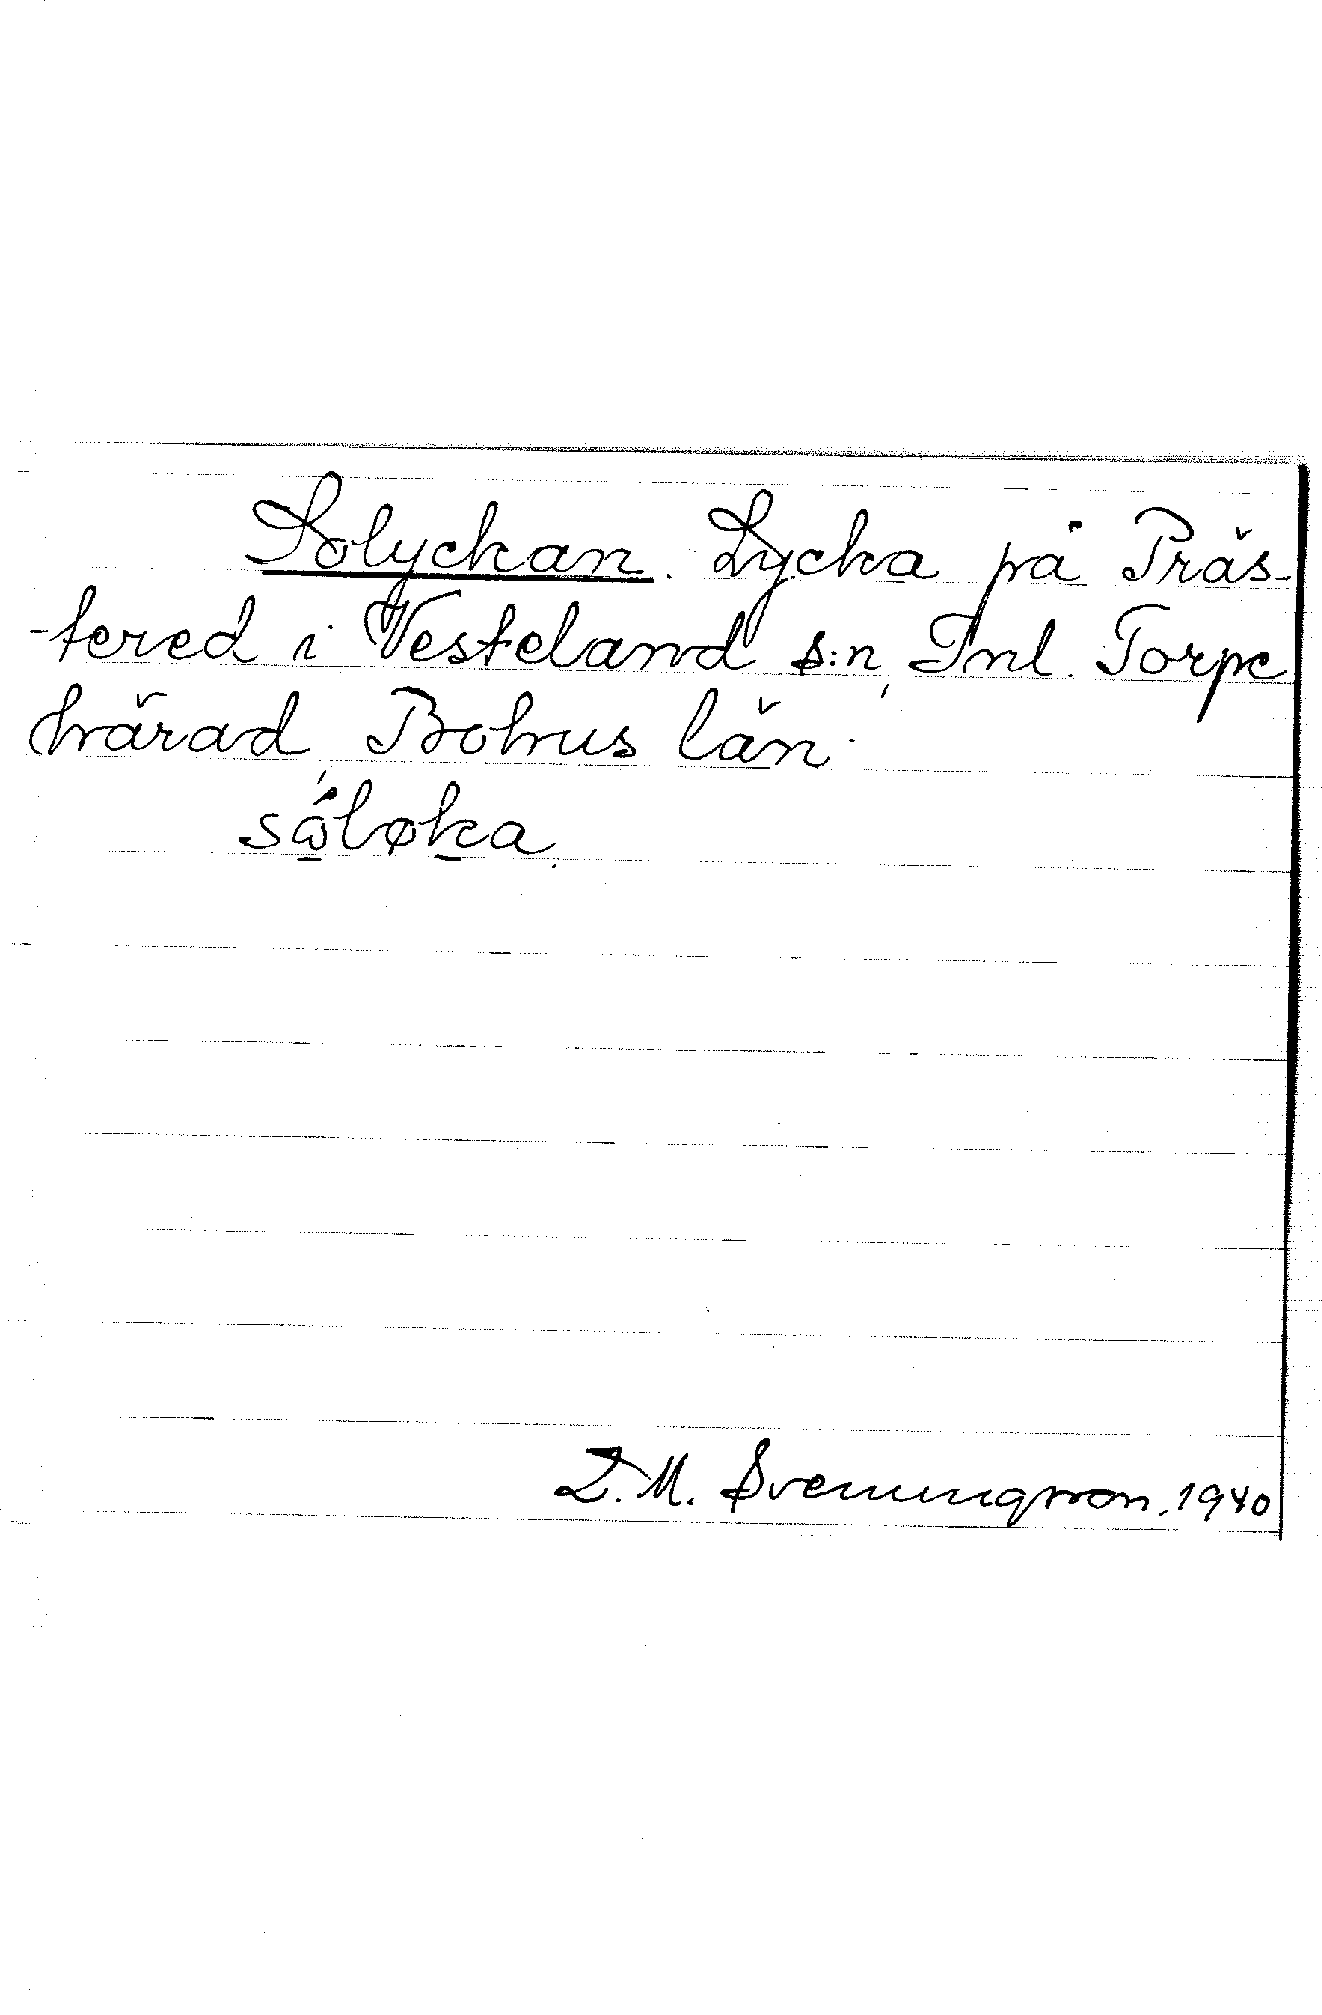 Solyckan. Lycka på Präs-
-tered i Vesteland s:n, Inl. Torpe
härad, Bohus län.
sώ̲løk̲a.
D. M. Svenungsson, 1940